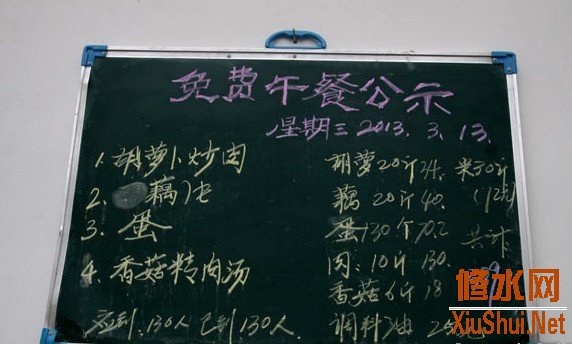 免费午餐公示
星期三 2013. 3. 13.
1. 胡萝卜炒肉
2. 藕片
3. 蛋
4. 香菇精肉汤
应到: 130人 已到: 130人.
胡萝20斤24. 米30斤
藕 20斤40.
蛋130个70.2 共计
肉: 10斤 130.
香菇6斤18
调料油
修水网
XiuShui.Net